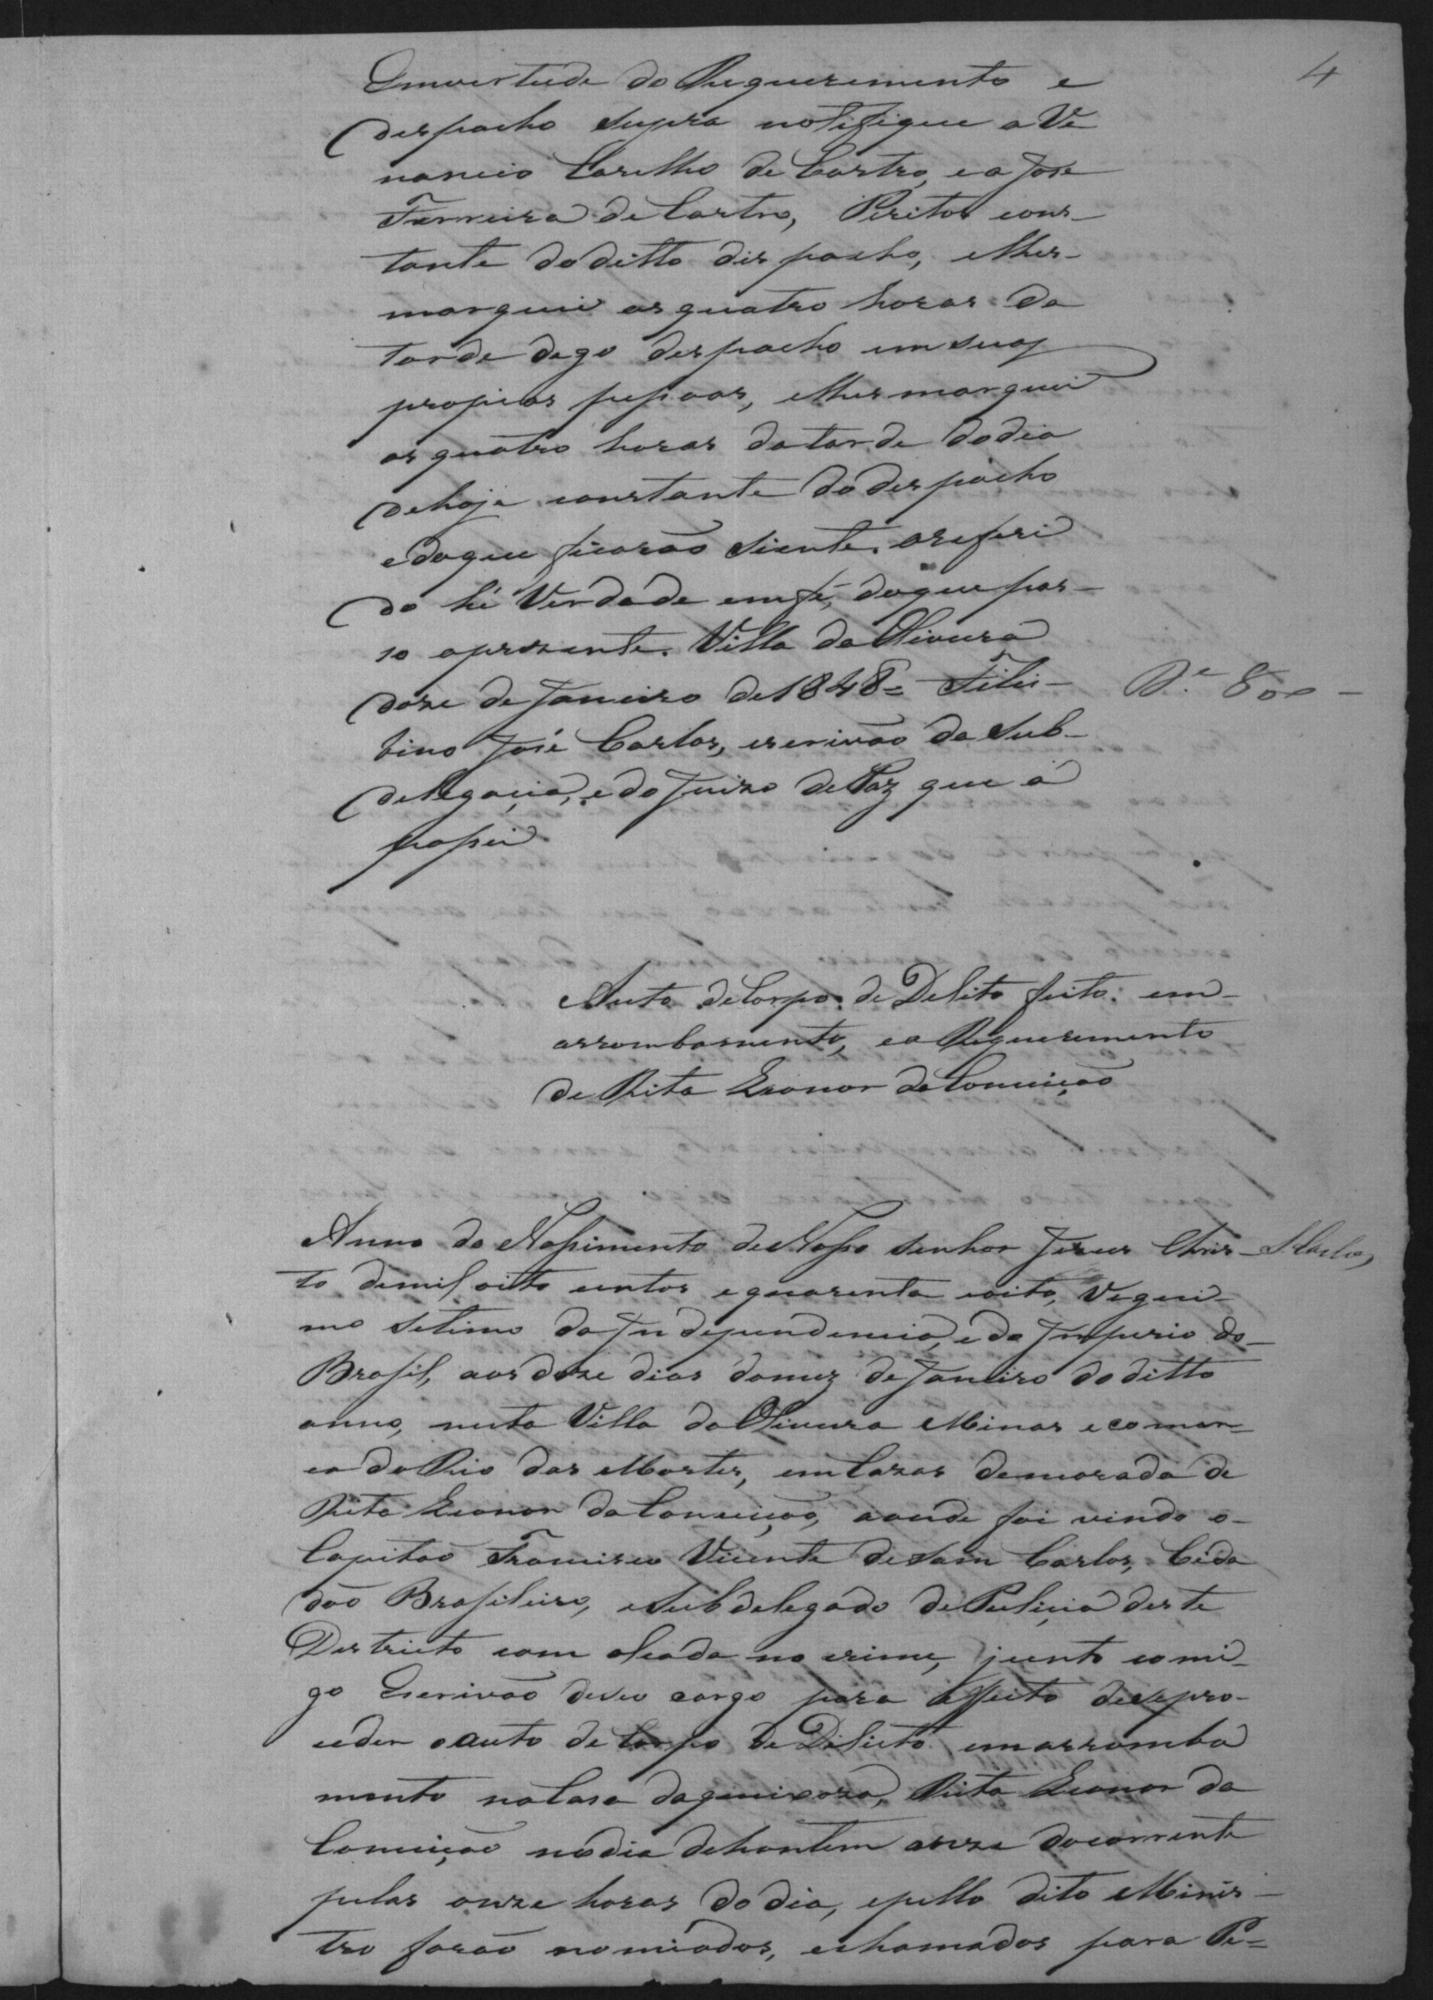 4
Emvertude do Requerimento e
despacho supra notifiquei a Ve
nancio Carilho de Castro, e a Jose
Ferreira de Castro, Peritos cons-
tante do ditto despacho, elhes
marquei as quatro horas da
tarde digo despacho em suas
propias pessoas, elhes marquei
as quatro horas da tarde do dia
de hoje constante do despacho
e do que ficarão siente. o referi
do hé Verdade em fé do que pas-
so o prezente. Villa da Oliveira
doze de Janeiro de 1848= Filis-
bino José Carlos, escrivão da Sub-
delegacia, e do Juizo de Paz que a
passei
De 800-
Auto de Corpo de Delito feito em
arrombamento, e a Requerimento
de Rita Leonor da Conceição
Anno do Nassimento de Nosso Senhor Jesus Chris-
S. Carlos,
to de mil oito centos e quarenta e oito, Vegeci-
mo Setimo da Independencia, e do Imperio do
Brasil, aos doze dias do mez de Janeiro do ditto
anno, nesta Villa da Oliveira Minas e comar-
ca do Rio das Mortes, em Cazas de morada de
Rita Leonor da Conceição, aonde foi vindo o
Capitão Francisco Vicente de Sam Carlos, Cida
dão Brasileiro, e Subdelegado de Policia deste
Districto com alçada no crime, junto comi-
go Escrivão de seu cargo para effeito de se pro-
ceder o auto de Corpo de Delicto em arromba
mento na Casa da queixoza, Rita Leonor da
Conceição no dia de hontem onze do corrente
pelas onze horas do dia, e pello dito Minis-
tro forão nomiados, e chamados para Pe=